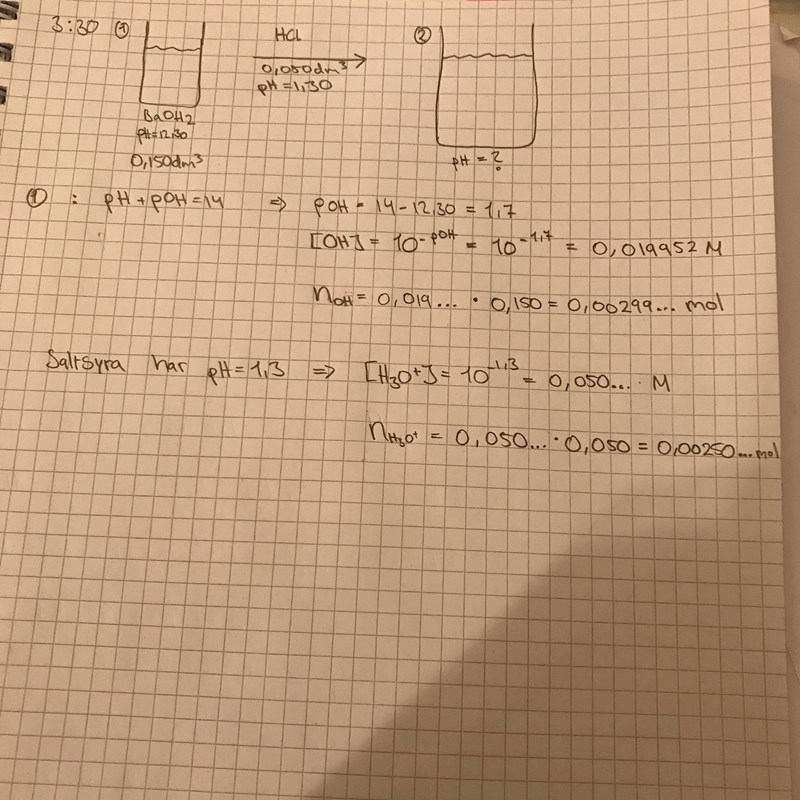 3:30 ① HCl ②
0,050dm³
pH = 1,30
BaOH2
pH=12,30
0,150dm³
pH = ?
① : pH + pOH = 14 ⇒ pOH = 14 - 12,30 = 1,7
[OH] = 10^-pOH = 10^-1,7 = 0,019952 M
nOH = 0,019... · 0,150 = 0,00299... mol
Saltsyra har pH = 1,3 ⇒ [H₃O+] = 10^-1,3 = 0,050... · M
nH₃O+ = 0,050... · 0,050 = 0,00250... mol